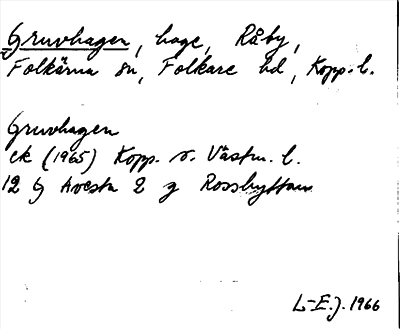 Gruvhagen, hage, Råby,
Folkärna sn, Folkare hd, Kopp. l.
Gruvhagen
ek (1965) Kopp. o. Västm. l.
12 G Avesta 2 g Rosshyttan
L-E. J. 1966